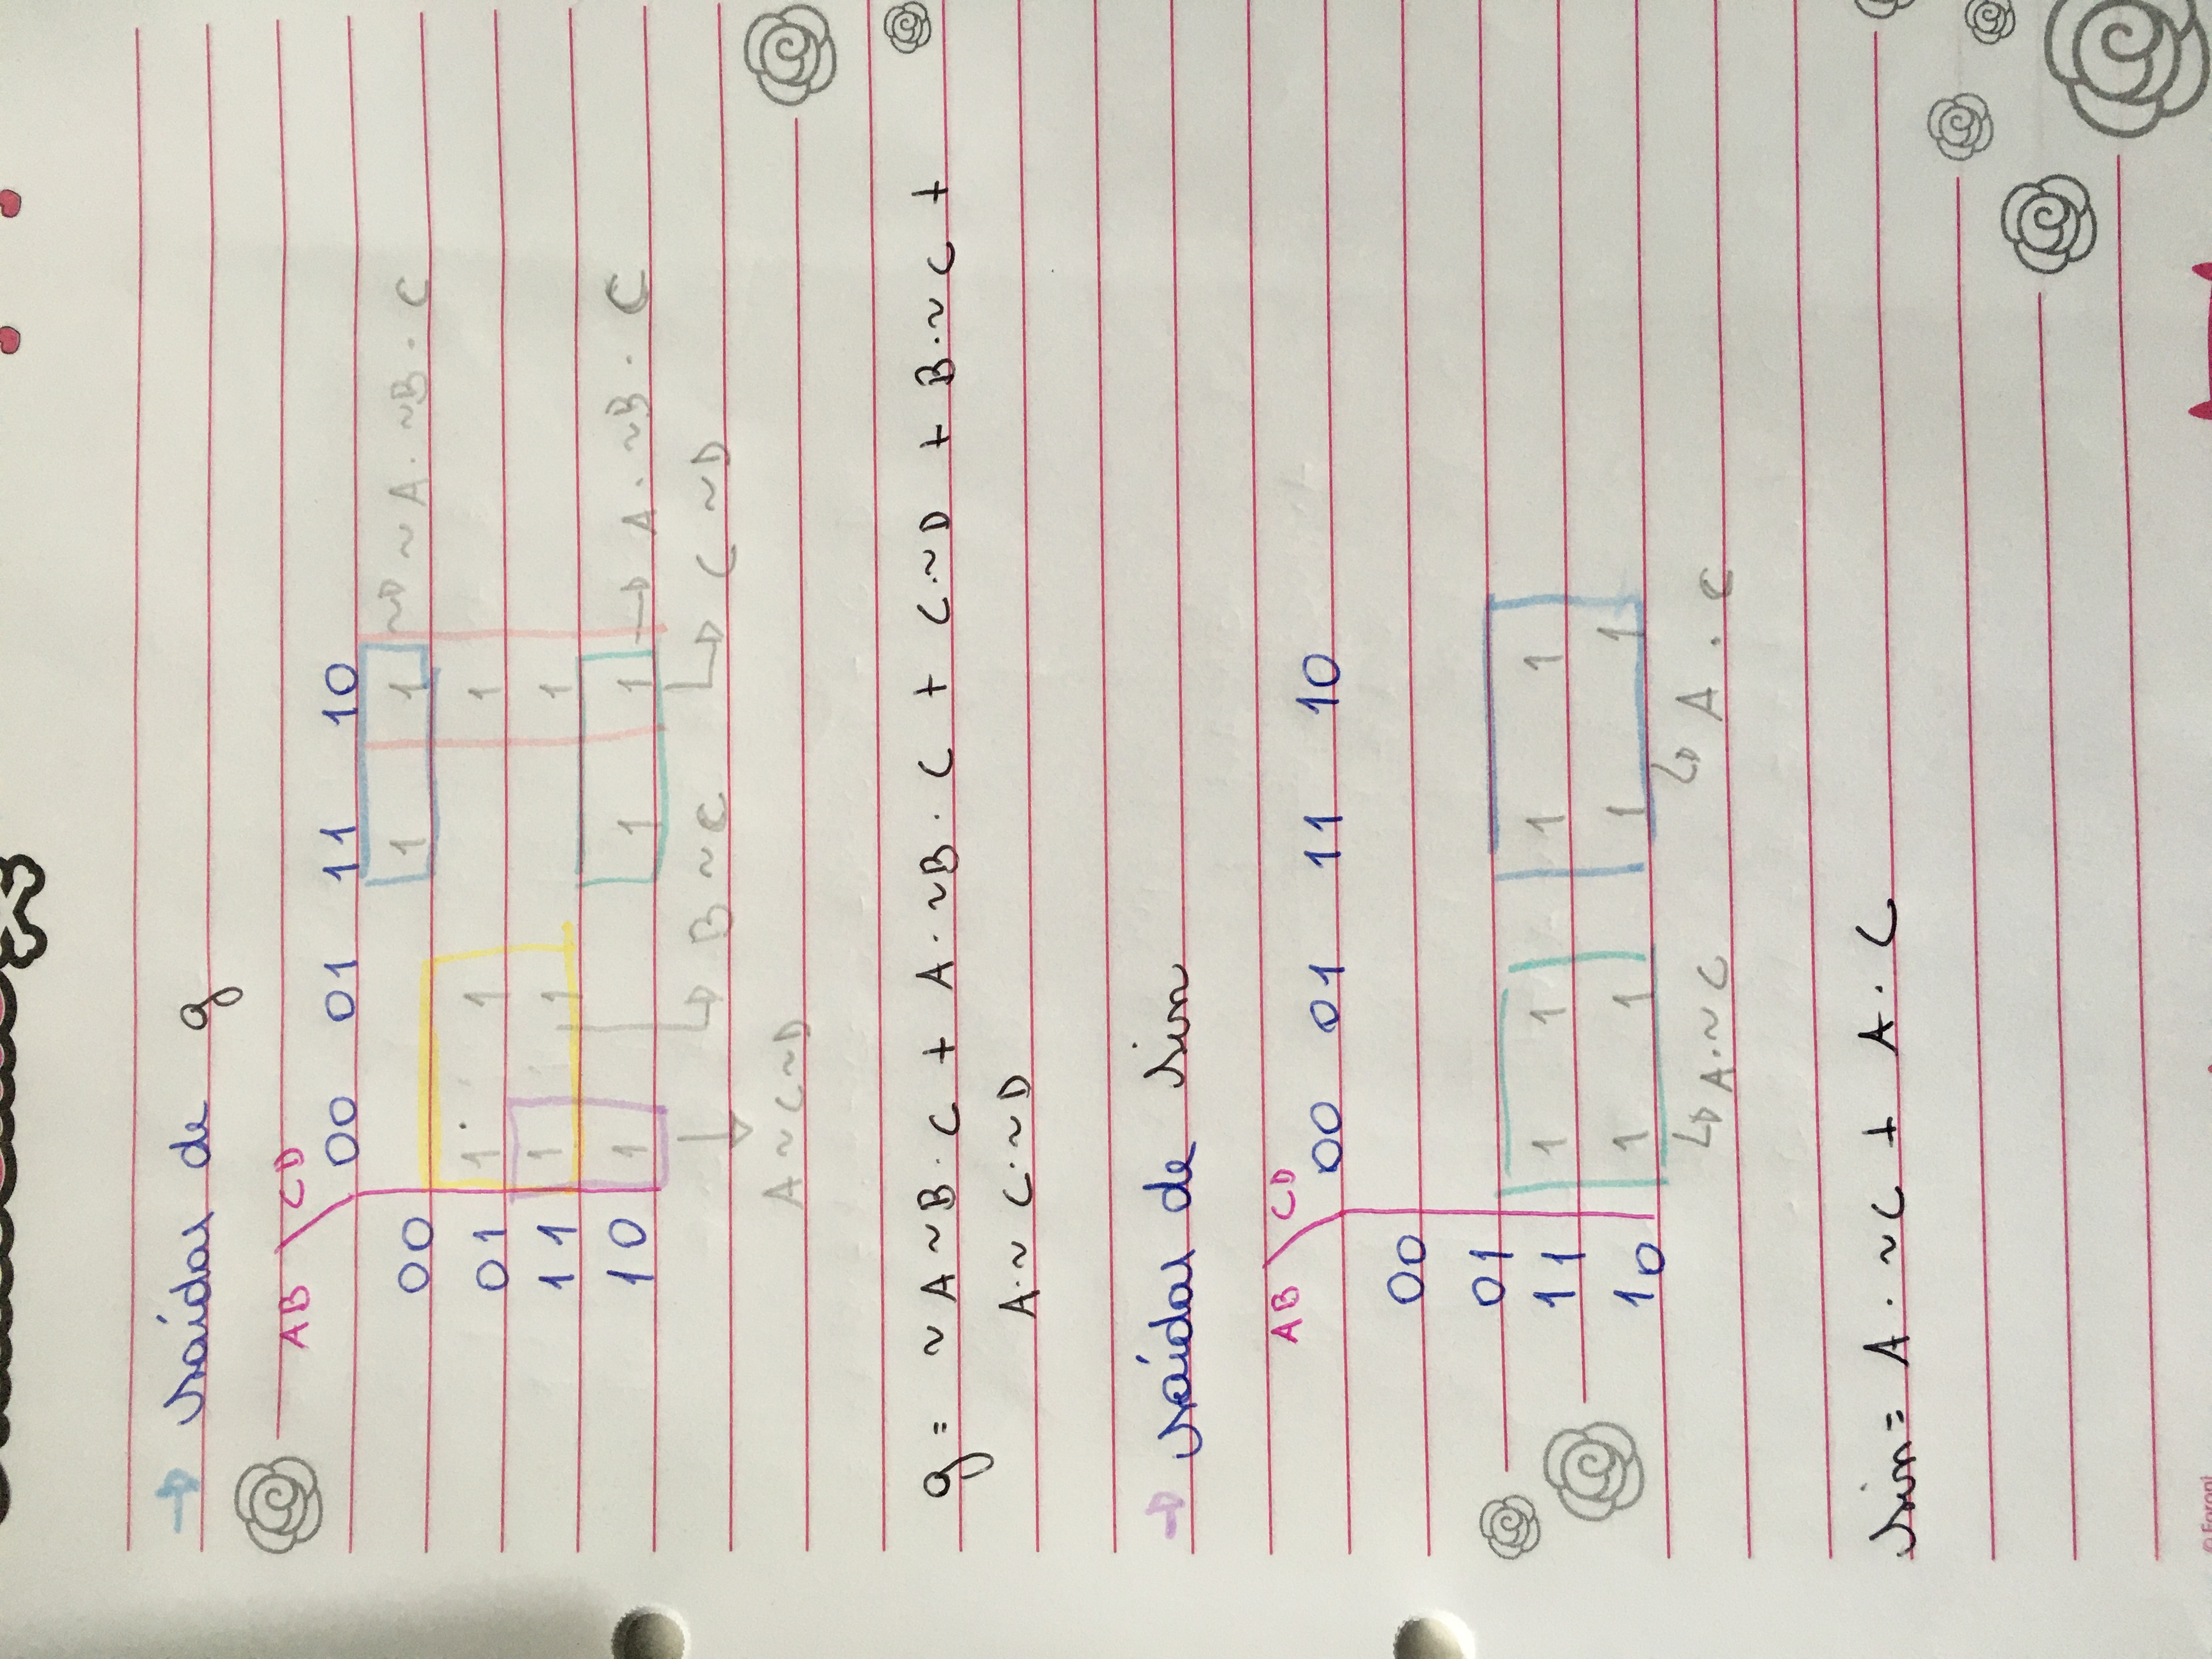 → saídas de g
AB \ CD
00 01 11 10
00 1 1 → ~A. ~B. C
01 1 1 1
11 1 1 1
10 1 1 1 → A. ~B. C
B ~C C ~D
A ~C ~D
g = ~A ~B. C + A. ~B. C + C.~D + B.~C +
A.~ C.~D
→ saídas de sin
AB \ CD
00 01 11 10
00
01
11 1 1 1 1
10 1 1 1 1
A.~C A . C
sin = A . ~C + A . C
© Foroni